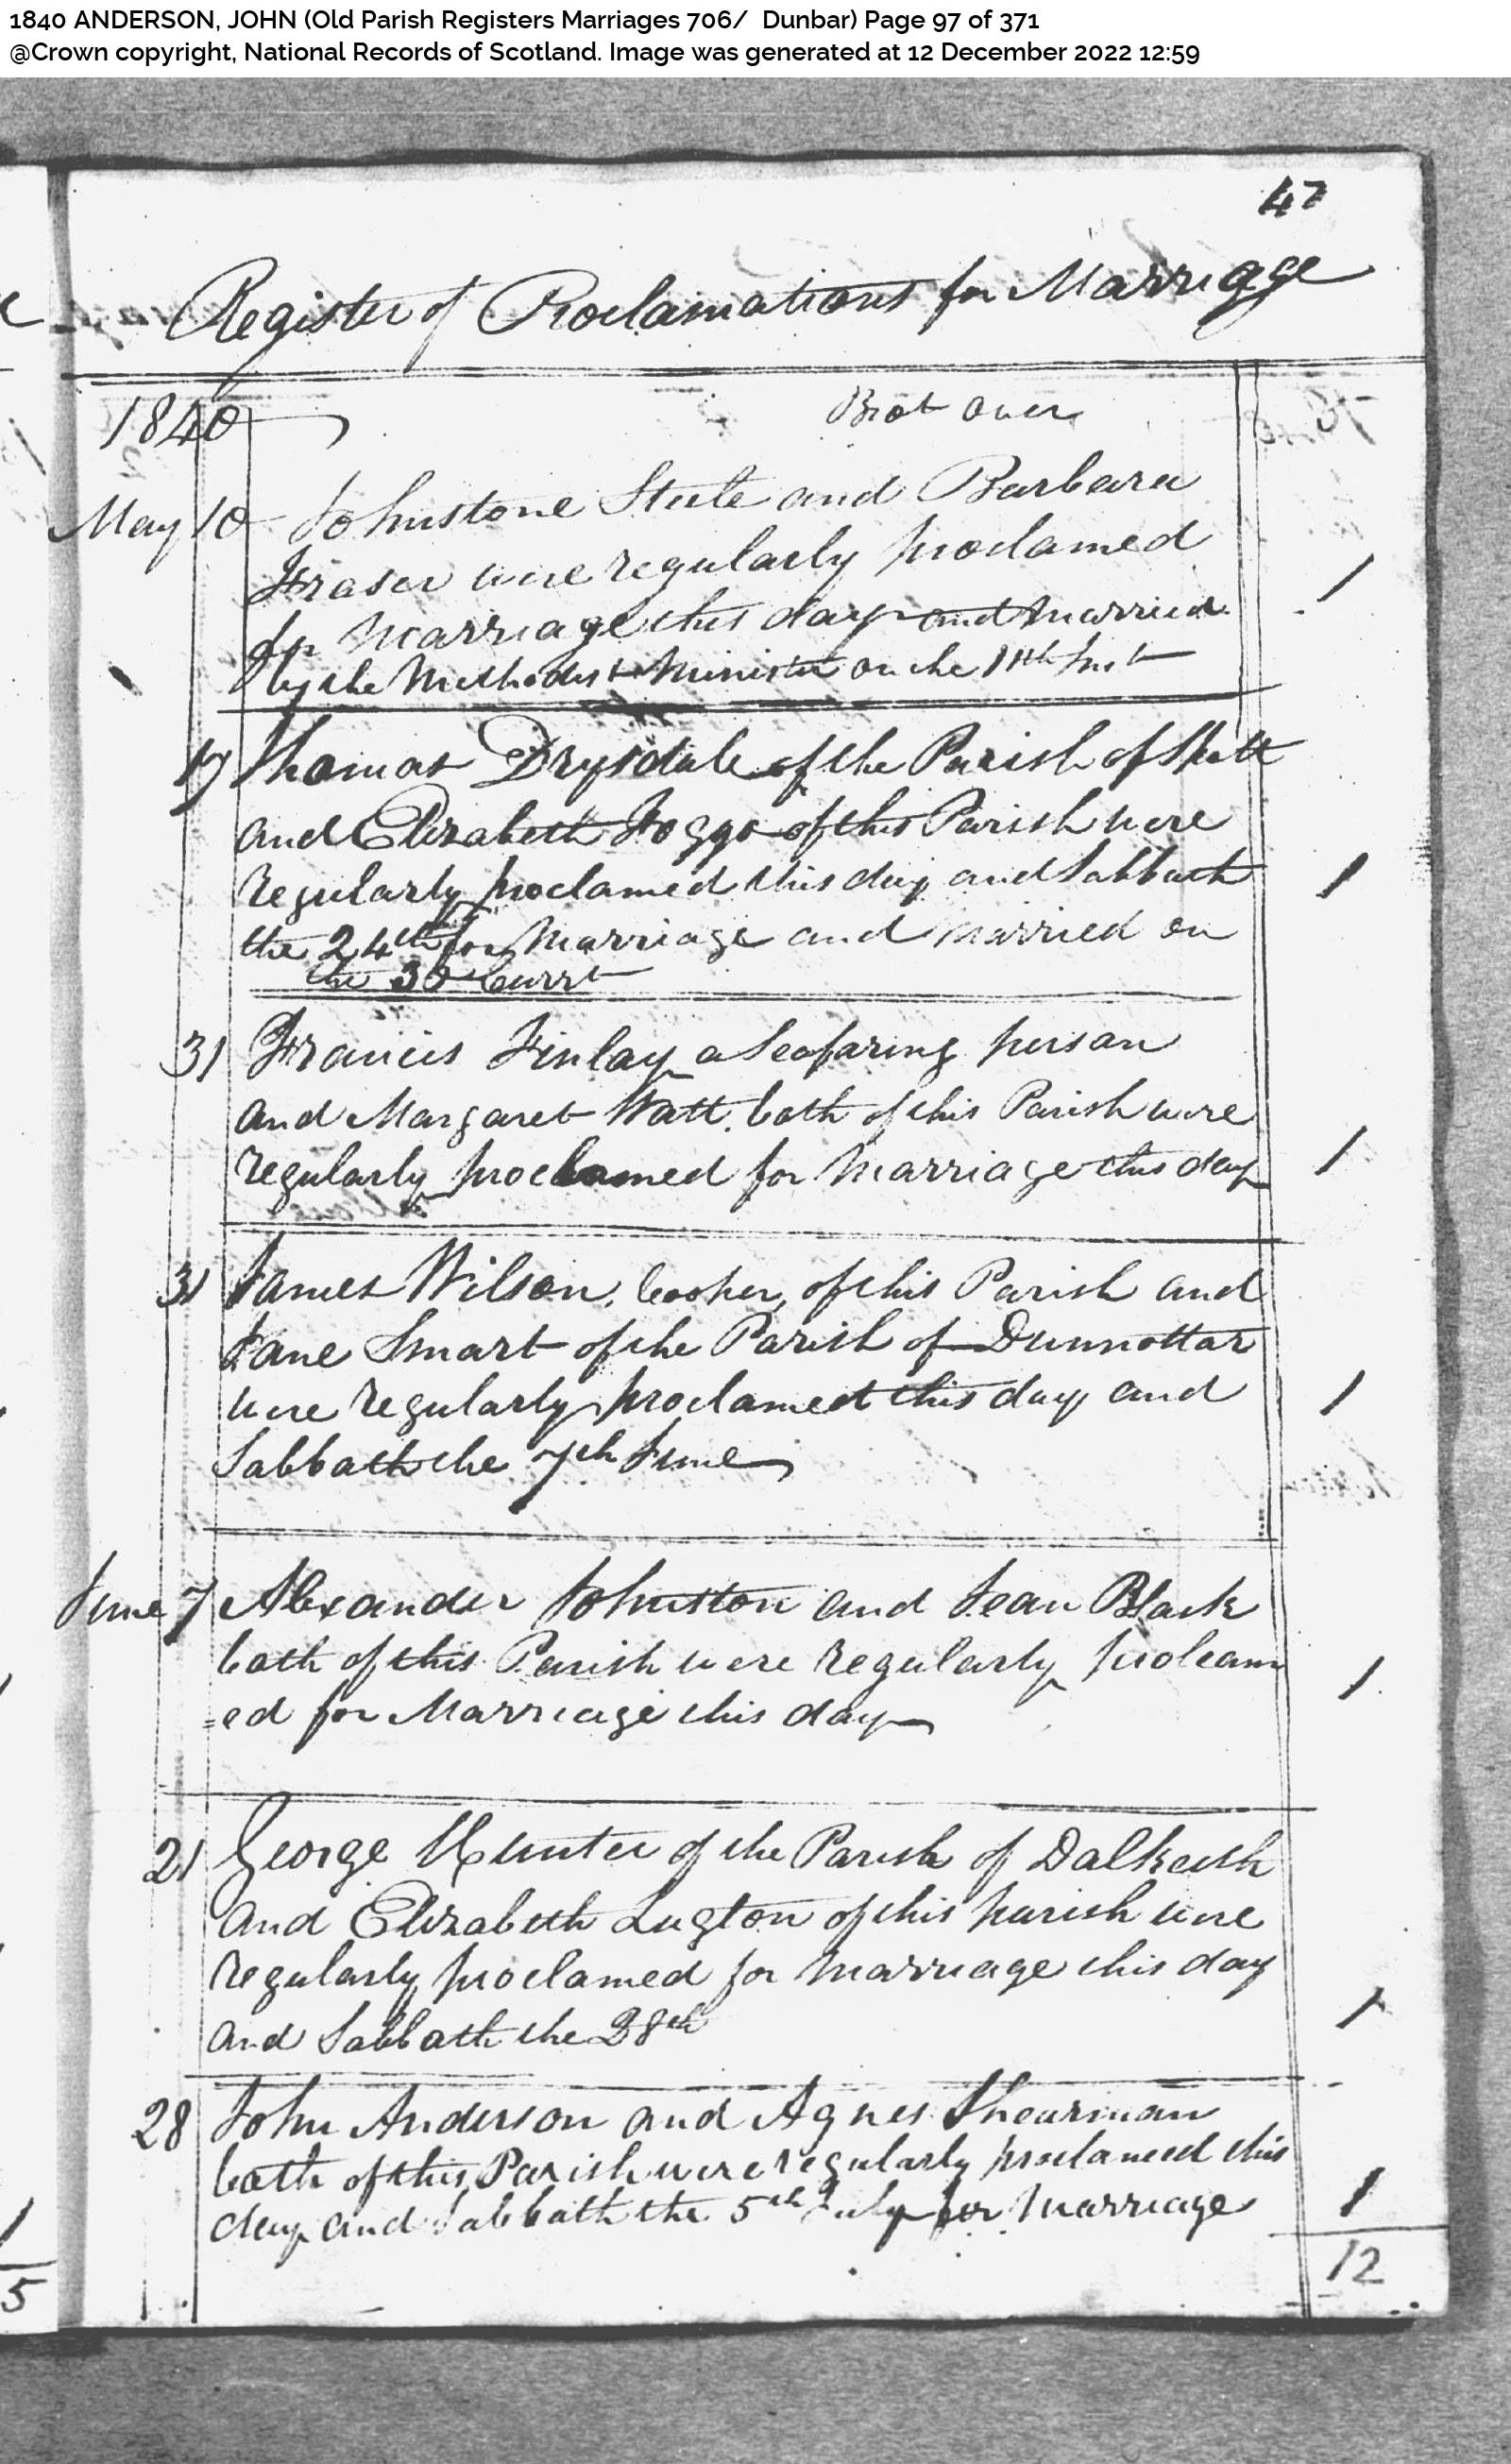 1840 ANDERSON, JOHN (Old Parish Registers Marriages 706/ Dunbar) Page 97 of 371
@Crown copyright, National Records of Scotland. Image was generated at 12 December 2022 12:59
47
Register of Proclamations for Marriage
1840 Brot over
May 10 Johnstone Steele and Barbara
Fraser were regularly proclamed
for Marriage this day and Married 1
by the Methodist Minister on the 11th Inst
17 Thomas Drysdale of the Parish of Spott
and Elizabeth Foggo of this Parish were
regularly proclamed this day and Sabbath 1
the 24th for Marriage and married on
the 30 Currt
31 Francis Finlay a Seafaring person
and Margaret Watt both of this Parish were
regularly proclamed for Marriage this day 1
31 James Wilson, Cooper, of this Parish and
Jane Smart of the Parish of Dunnottar
were regularly proclamed this day and 1
Sabbath the 7th June
June 7 Alexander Johnston and Jean Black
both of this Parish were regularly proleam 1
=ed for Marriage this day
21 George Hunter of the Parish of Dalkeith
and Elizabeth Lugton of this parish were
regularly proclamed for marriage this day
and Sabbath the 28th 1
28 John Anderson and Agnes Shearman
both of this Parish were regularly proclamed this
day and Sabbath the 5th July for Marriage 1
12
1
5